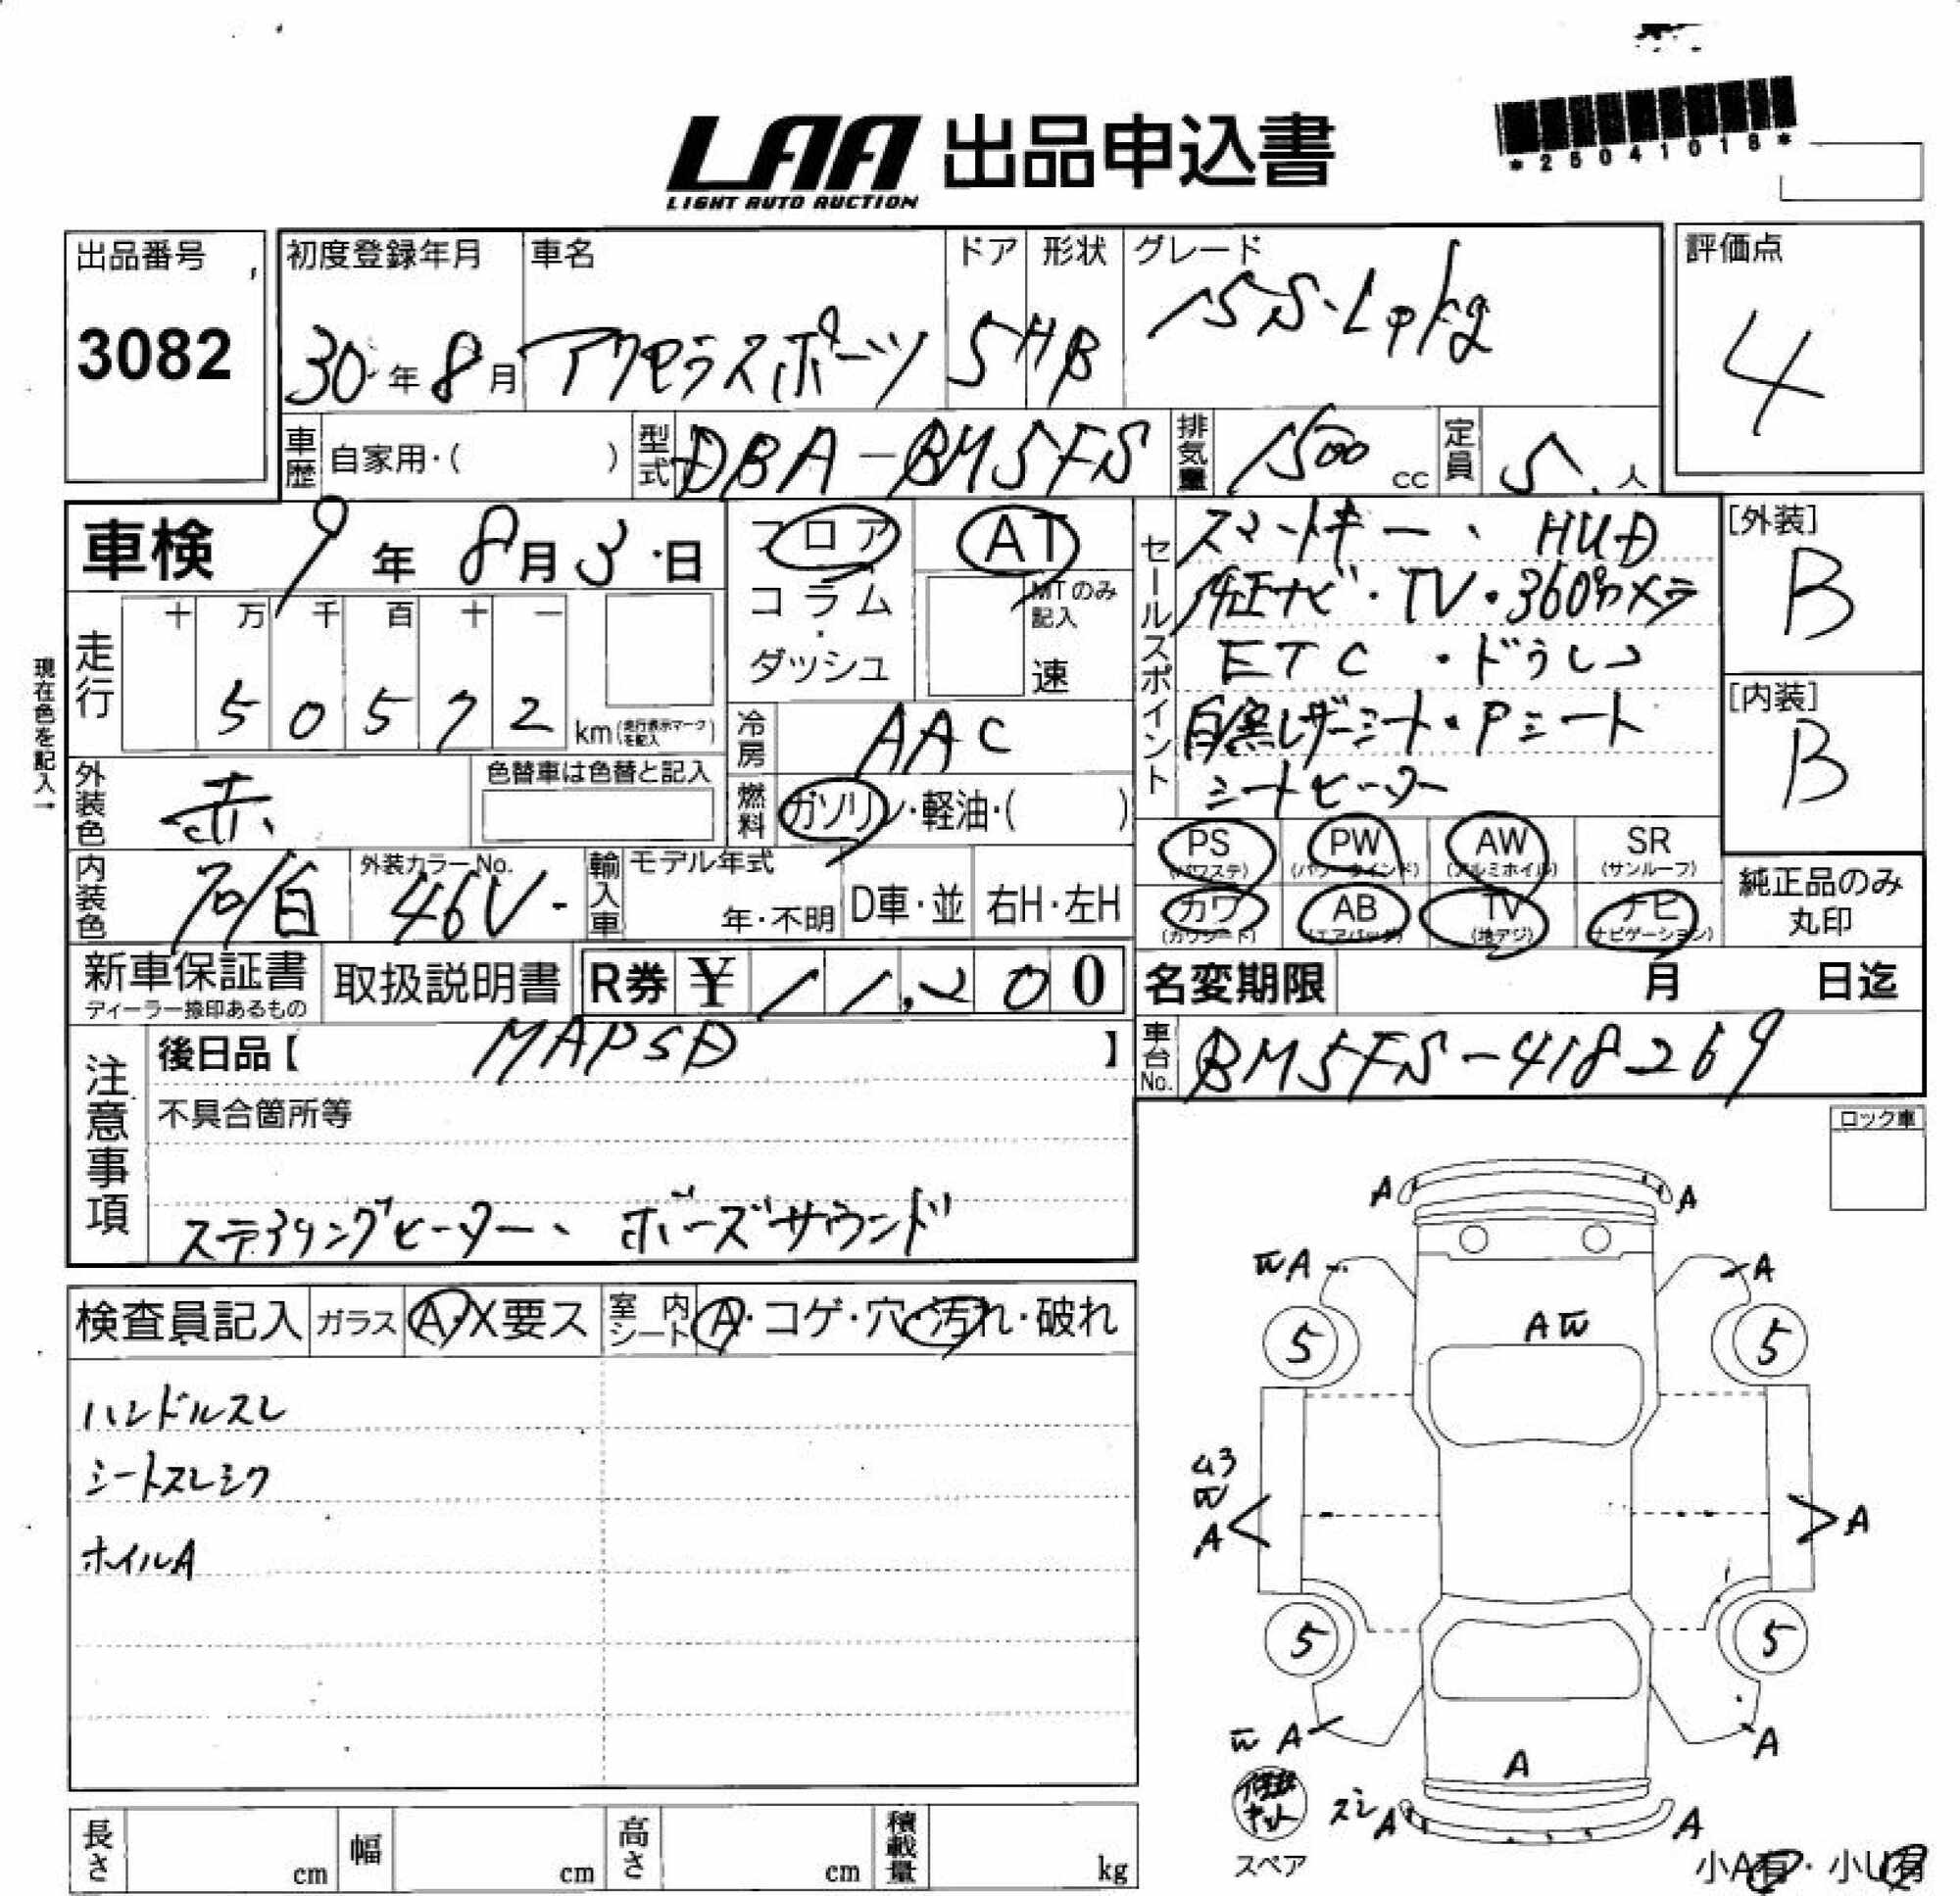 LAA 出品申込書
LIGHT AUTO AUCTION
*25041018*
出品番号
3082
初度登録年月
30年8月
車名
アクセラスポーツ
ドア
5
形状
HB
グレード
15S・Lpkg
評価点
4
車歴 自家用・( )
型式 DBA-BM5FS
排気量 1500 cc
定員 5 人
車検 9年8月3日
フロア
コラム
・
ダッシュ
AT
MTのみ記入
速
セールスポイント
スマートキー、HUD
純正ナビ・TV・360°カメラ
ETC・ドラレコ
白黒レザーシート・Pシート
シートヒーター
[外装]
B
[内装]
B
現在色を記入→
走行
十 万 千 百 十 一
5 0 5 7 2
km(走行表示マークを記入)
冷房 AAC
燃料 ガソリン・軽油・( )
外装色 赤
色替車は色替と記入
内装色
白
外装カラーNo.
46V
輸入車
モデル年式
年・不明
D車・並
右H・左H
PS (パワステ)
PW (パワーウインド)
AW (アルミホイル)
SR (サンルーフ)
カワ (カワシート)
AB (エアバッグ)
TV (地デジ)
ナビ (ナビゲーション)
純正品のみ
丸印
新車保証書
ディーラー捺印あるもの
取扱説明書
R券 ¥ 11,200
名変期限 月 日迄
注意事項
後日品【 MAPSD 】
車台No. BM5FS-418269
不具合箇所等
ステアリングヒーター、ボーズサウンド
ロック車
検査員記入
ガラス A・X要ス
室内シート A・コゲ・穴・汚れ・破れ
ハンドルスレ
シートスレシワ
ホイルA
A A
A A
A
5 5
A3
A A
5 5
A A
A
スレ A A
スペア
小A有・小U有
長さ cm
幅 cm
高さ cm
積載量 kg